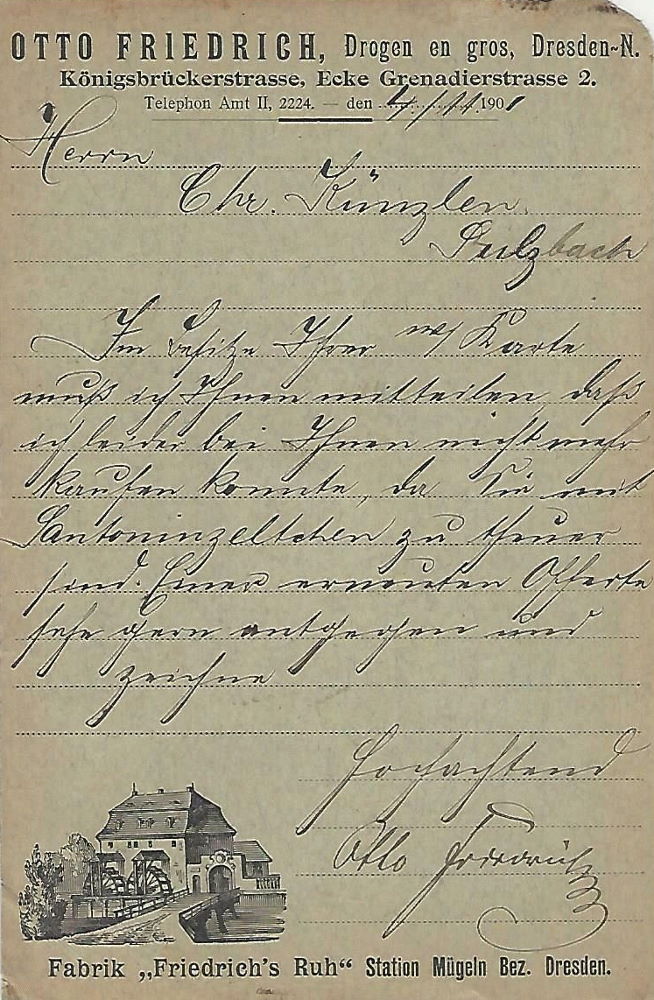 OTTO FRIEDRICH, Drogen en gros, Dresden-N.
Königsbrückerstrasse, Ecke Grenadierstrasse 2.
Telephon Amt II, 2224. — den 4/11 1901
Herrn
Chr. Künzlen
Sulzbach
Im Besitze Ihrer w/ Karte
muß ich Ihnen mitteilen, daß
ich leider bei Ihnen nicht mehr
kaufen konnte, da Sie mit
Santoninzeltchen zu theuer
sind. Einer erneuten Offerte
sehe gern entgegen und
zeichne
Hochachtend
Otto Friedrich
Fabrik „Friedrich's Ruh“ Station Mügeln Bez. Dresden.